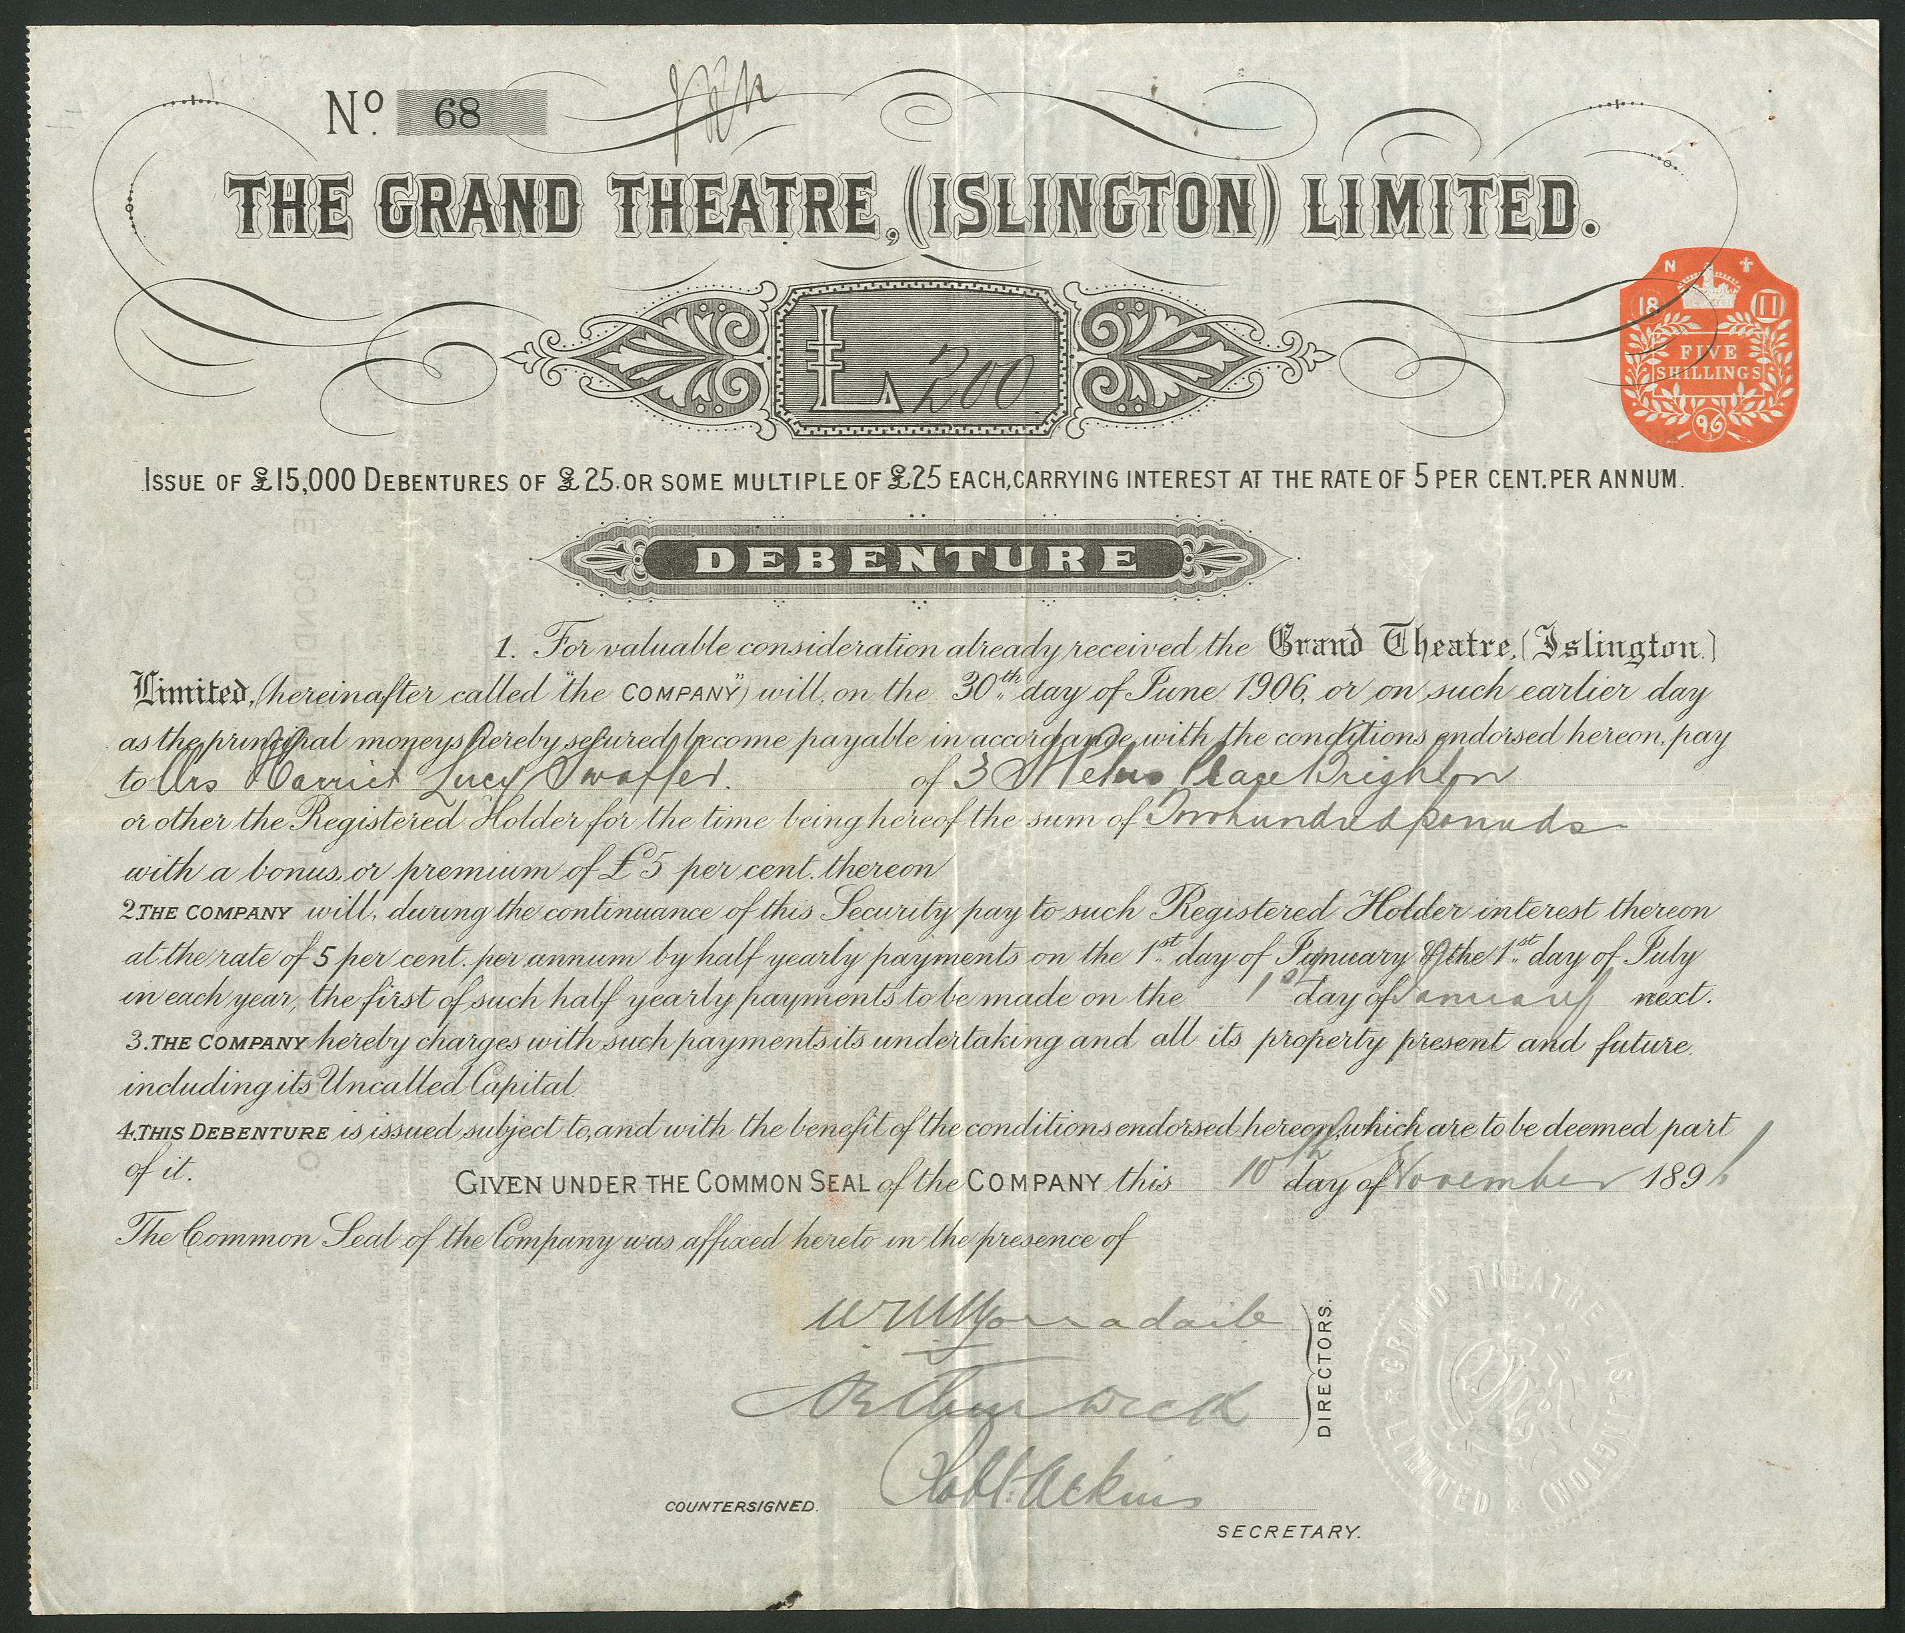 No. 68
THE GRAND THEATRE, (ISLINGTON) LIMITED.
£ 200
N
18 11
FIVE
SHILLINGS
96
ISSUE OF £15,000 DEBENTURES OF £25. OR SOME MULTIPLE OF £25 EACH, CARRYING INTEREST AT THE RATE OF 5 PER CENT. PER ANNUM.
DEBENTURE
1. For valuable consideration already received the Grand Theatre, (Islington)
Limited, (hereinafter called "the COMPANY") will, on the 30th day of June 1906, or on such earlier day
as the principal moneys hereby secured become payable in accordance with the conditions endorsed hereon, pay
to Mrs Harriet Lucy Swaffer. of 3 Place Brighton
or other the Registered Holder for the time being hereof the sum of Two hundred pounds
with a bonus, or premium of £5 per cent. thereon
2. THE COMPANY will, during the continuance of this Security pay to such Registered Holder interest thereon
at the rate of 5 per cent. per annum by half yearly payments on the 1st day of January & the 1st day of July
in each year, the first of such half yearly payments to be made on the 1st day of January next.
3. THE COMPANY hereby charges with such payments its undertaking and all its property present and future
including its Uncalled Capital.
4. THIS DEBENTURE is issued subject to, and with the benefit of the conditions endorsed hereon, which are to be deemed part
of it.
GIVEN UNDER THE COMMON SEAL of the COMPANY this 10th day of November 1896
The Common Seal of the Company was affixed hereto in the presence of
DIRECTORS.
COUNTERSIGNED. Robt. Ackins
SECRETARY.
GRAND THEATRE ISLINGTON) LIMITED